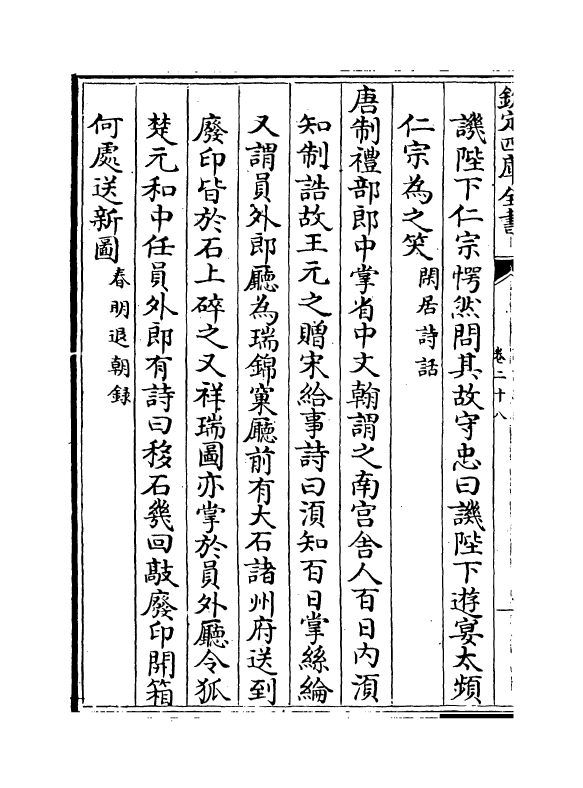 欽定四庫全書
卷二十八
譏陛下仁宗愕然問其故守忠曰譏陛下遊宴太頻
仁宗為之笑閑居詩話
唐制禮部郎中掌省中文翰謂之南宮舍人百日内湏
知制誥故王元之贈宋給事詩曰湏知百日掌絲綸
又謂員外郎廳為瑞錦窠廳前有大石諸州府送到
廢印皆於石上碎之又祥瑞圖亦掌於員外廳令狐
楚元和中任員外郎有詩曰移石幾回敲廢印開箱
何處送新圖春明退朝録